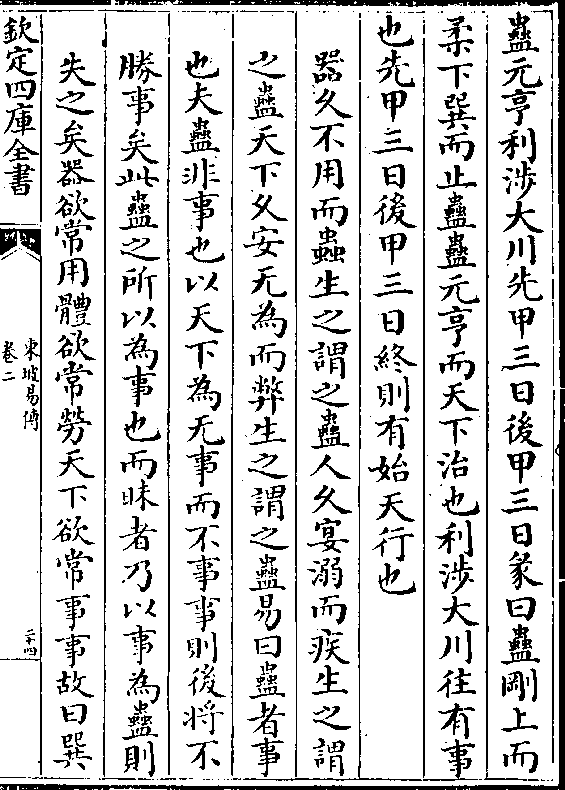 蠱元亨利涉大川先甲三日後甲三日彖曰蠱剛上而
柔下巽而止蠱蠱元亨而天下治也利涉大川往有事
也先甲三日後甲三日終則有始天行也
器久不用而蟲生之謂之蠱人久宴溺而疾生之謂
之蠱天下久安无為而弊生之謂之蠱易曰蠱者事
也夫蠱非事也以天下為无事而不事事則後將不
勝事矣此蠱之所以為事也而昧者乃以事為蠱則
失之矣器欲常用體欲常勞天下欲常事事故曰巽
欽定四庫全書
東坡易傳
卷二
二十四